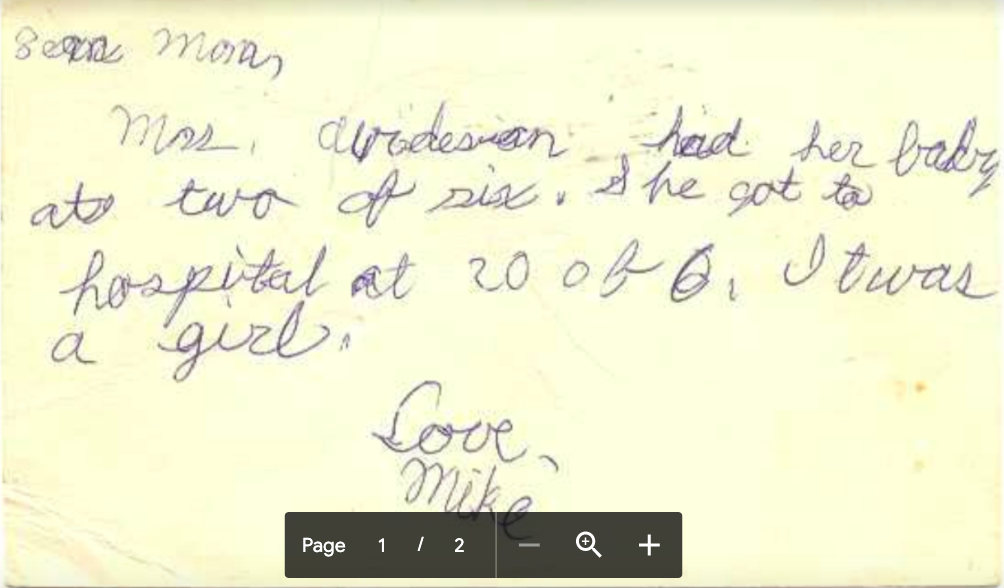 Dear Mom,
Mrs. had her baby
at two of six. She got to
hospital at 20 of 6. It was
a girl.
Love,
Mike
Page 1 / 2